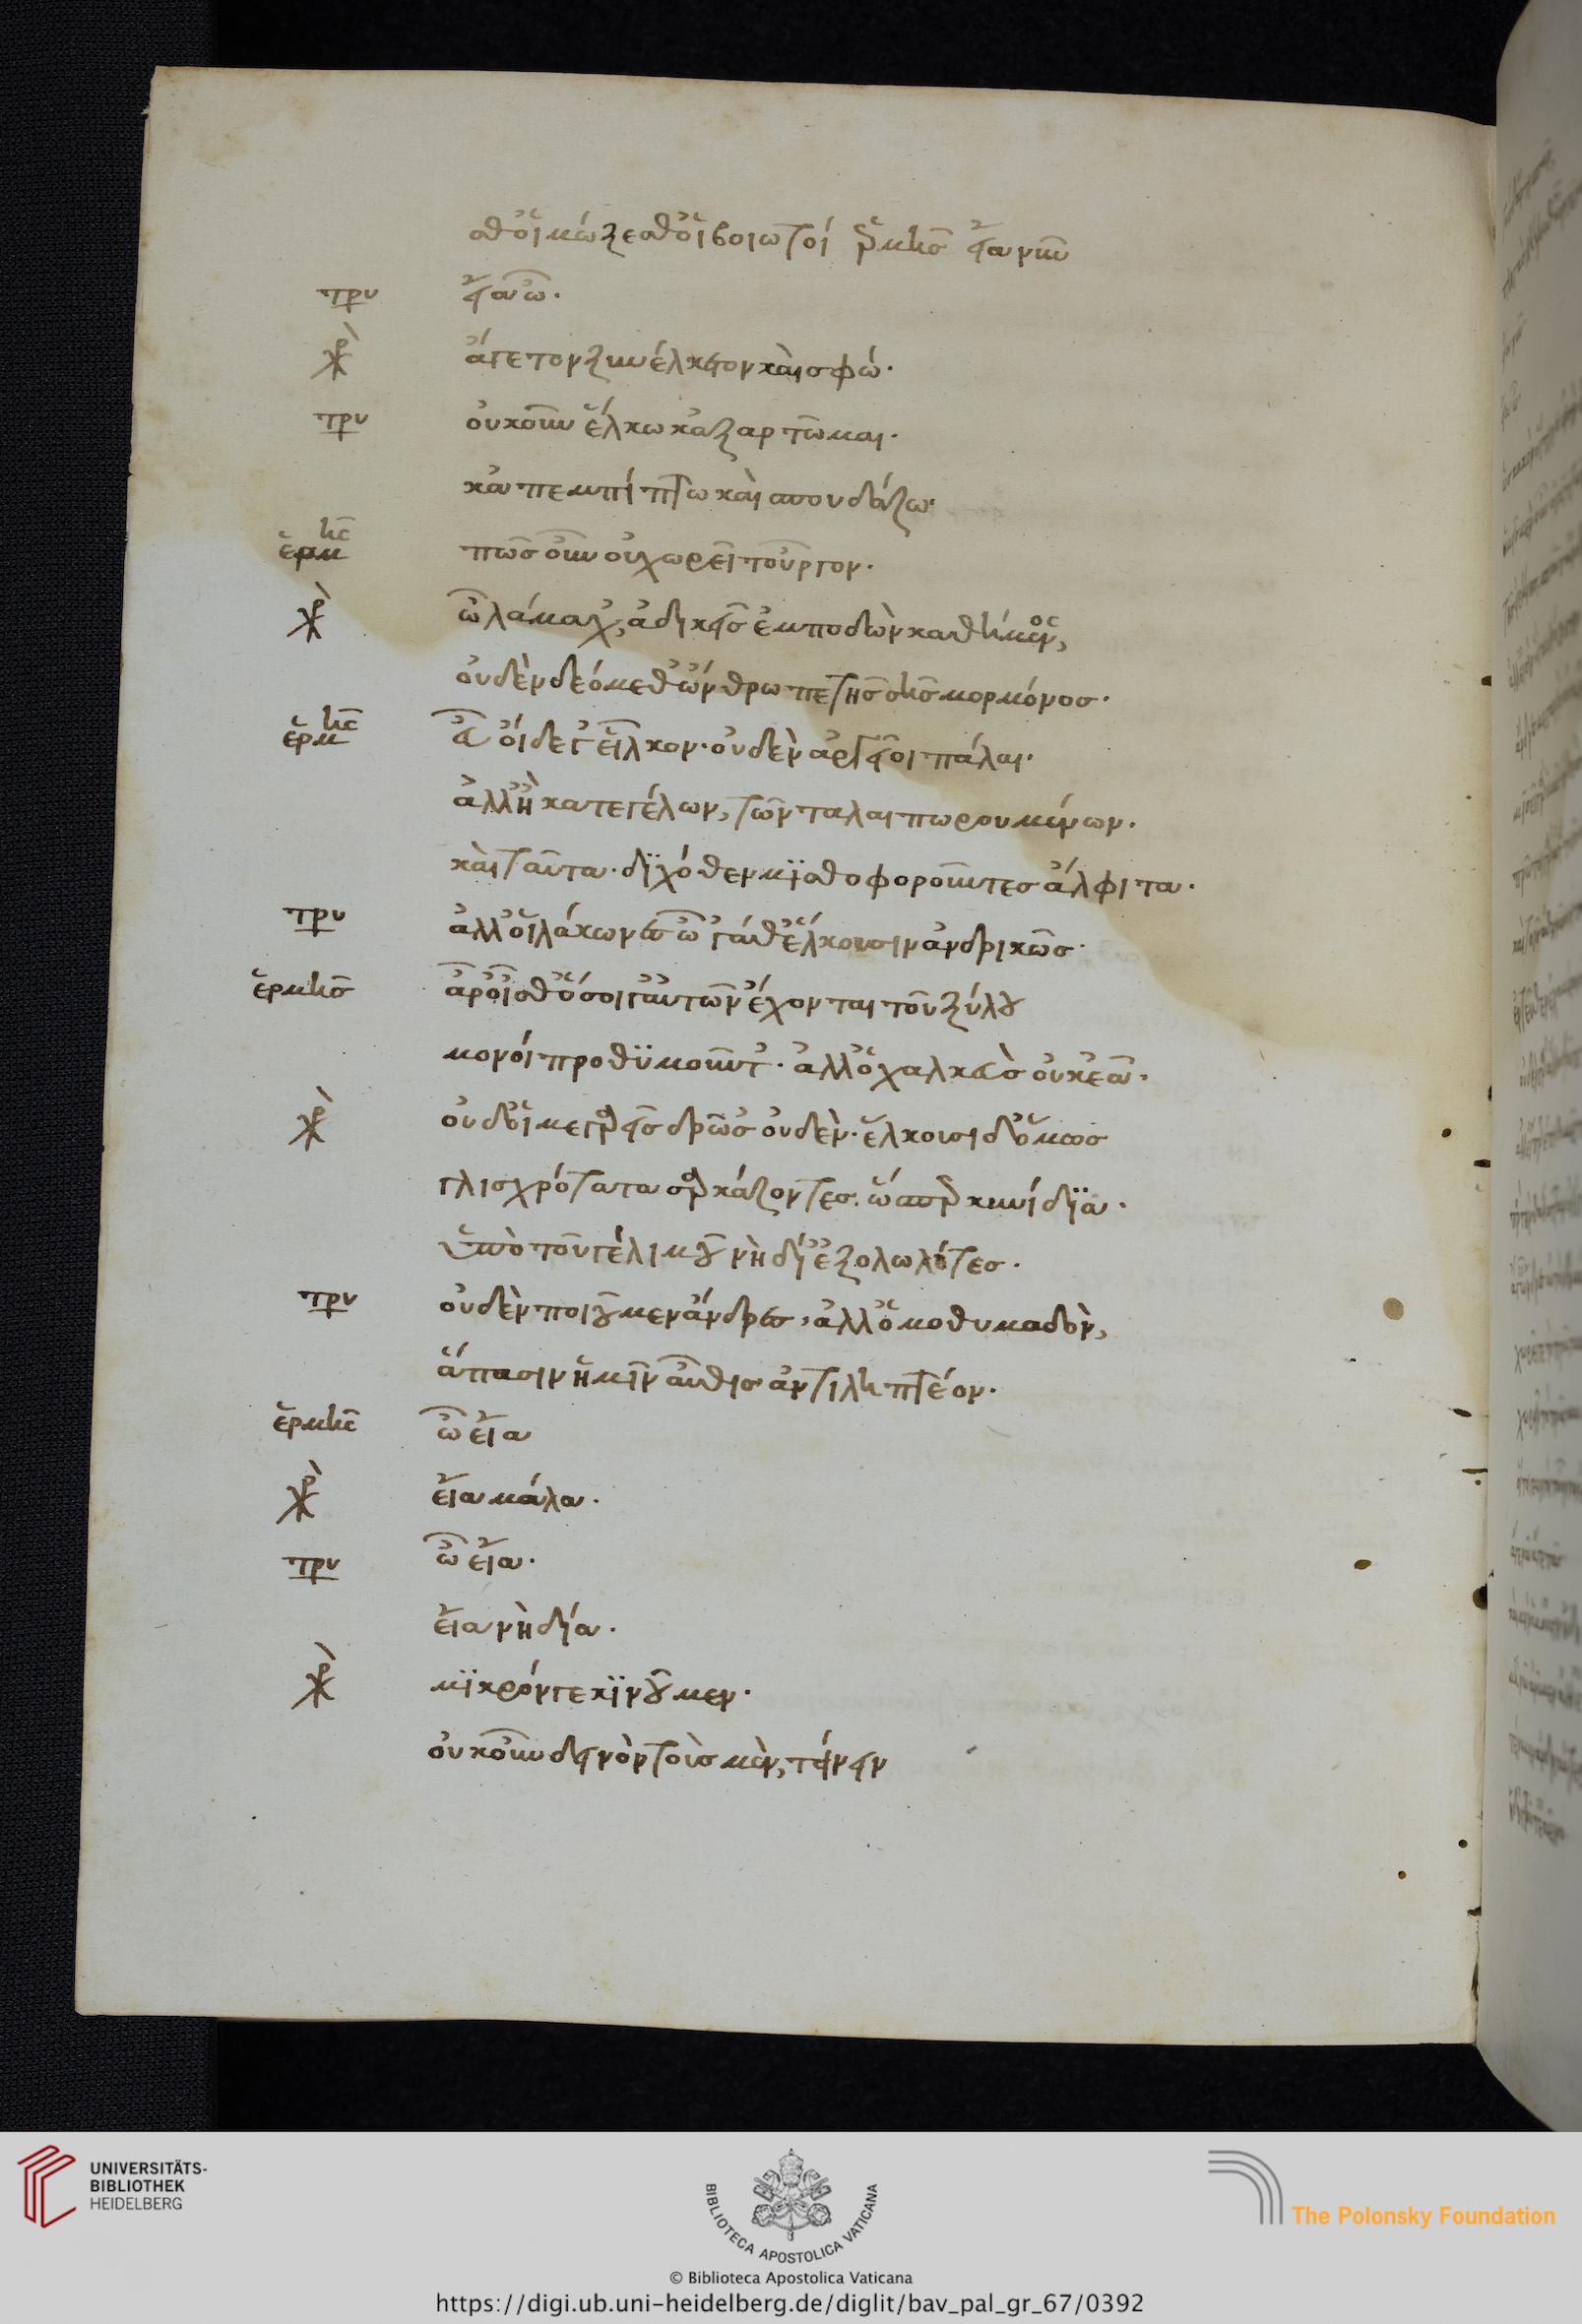 σθ' οἰμώξεσθ' οἱ βοιωτοί ἑρμῆς εἶα νῦν
τρυ εἶα ὦ.
χρ ἄγετον ξυνέλκετον καὶ σφώ.
τρυ οὐκοῦν ἕλκω κἀξαρτῶμαι.
κἀπεμπίπτω καὶ σπουδάζω.
ἑρμῆς πῶς οὖν οὐ χωρεῖ τοὖργον.
χρ ὦ λάμαχ', ἀδικεῖς ἐμποδὼν καθήμενος,
οὐδὲν δεόμεθ' ὤνθρωπε τῆς σῆς μορμόνος.
ἑρμῆς οὐδ' οἵδε γ' εἷλκον· οὐδὲν ἀργεῖοι πάλαι.
ἀλλ' ἢ κατεγέλων, τῶν ταλαιπωρουμένων.
καὶ ταῦτα· διχόθεν μϊσθοφοροῦντες ἄλφιτα.
τρυ ἀλλ' οἱ λάκωνες ὦ γάθ' ἕλκουσιν ἀνδρικῶς.
ἑρμῆς ἆρ' οἶσθ' ὅσοι γ' αὐτῶν ἔχονται τοῦ ξύλου
μονοί προθϋμοῦντ'· ἀλλ' ὁ χαλκεὺς οὐκ ἐᾶ.
χρ οὐδ' οἱ μεγαρεῖς δρῶσ' οὐδὲν· ἕλκουσι δ' ὅμως
γλισχρότατα σαρκάζοντες. ὥσπερ κυνίδϊα.
ὑπὸ τοῦ γέ λιμοῦ νὴ δί' ἐξολωλότες.
τρυ οὐδὲν ποιοῦμεν ἄνδρες, ἀλλ' ὁμοθυμαδὸν,
ἅπασιν ἡμῖν αὖθις ἀντιληπτέον.
ἑρμῆς ὦ εἶα
χρ εἶα μάλα.
τρυ ὦ εἶα.
εἶα νὴ δία.
χρ μϊκρόν γε κϊνοῦμεν.
οὐκοῦν δεινὸν τοὺς μὲν, τείνειν
UNIVERSITÄTS-
BIBLIOTHEK
HEIDELBERG
BIBLIOTECA APOSTOLICA VATICANA
The Polonsky Foundation
© Biblioteca Apostolica Vaticana
https://digi.ub.uni-heidelberg.de/diglit/bav_pal_gr_67/0392